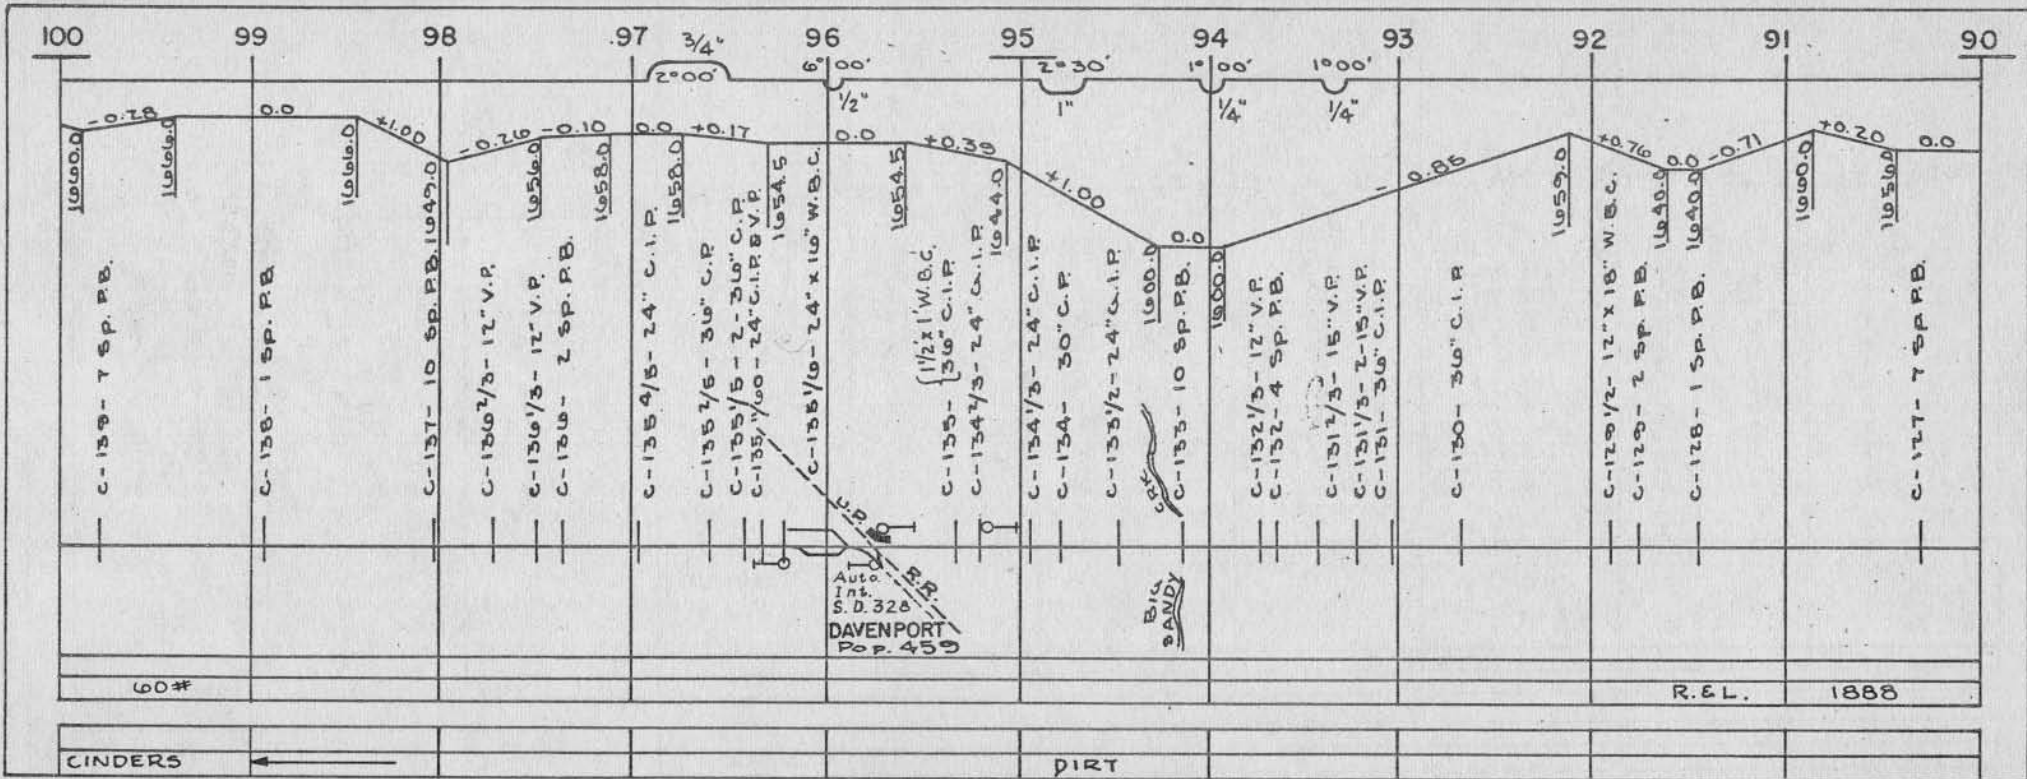 100 99 98 97 96 95 94 93 92 91 90
3/4"
2°00' 6°00' 2°30' 1°00' 1°00'
1/2" 1" 1/4" 1/4"
-0.28 0.0 +1.00 -0.26 -0.10 0.0 +0.17 0.0 +0.39 +1.00 0.0 - 0.85 +0.76 0.0 -0.71 +0.20 0.0
1660.0
1666.0
1666.0
1649.0
1656.0
1658.0
1658.0
1654.5
1654.5
1644.0
1600.0
1600.0
1659.0
1640.0
1640.0
1660.0
1656.0
C-139- 7 Sp. P.B.
C-138- 1 Sp. P.B.
C-137- 10 Sp. P.B.
C-136 2/3- 12" V.P.
C-136 1/3- 12" V.P.
C-136- 2 Sp. P.B.
C-135 4/5- 24" C.I.P.
C-135 2/5- 36" C.P.
C-135 1/5- 2- 36" C.P.
C-135 1/60- 24" C.I.P. & V.P.
C-135 1/6- 24" x 16" W.B.C.
C-135- { 1 1/2' x 1' W.B.C.
36" C.I.P.
C-134 2/3- 24" C.I.P.
C-134 1/3- 24" C.I.P.
C-134- 30" C.P.
C-133 1/2- 24" C.I.P.
CRK.
C-133- 10 Sp. P.B.
C-132 1/3- 12" V.P.
C-132- 4 Sp. P.B.
C-131 2/3- 15" V.P.
C-131 1/3- 2-15" V.P.
C-131- 36" C.I.P.
C-130- 36" C.I.P.
C-129 1/2- 12" x 18" W.B.C.
C-129- 2 Sp. P.B.
C-128- 1 Sp. P.B.
C-127- 7 Sp. P.B.
U.P. R.R.
Auto.
Int.
S.D. 328
DAVENPORT
Pop. 459
BIG
SANDY
60# R.&L. 1888
CINDERS DIRT